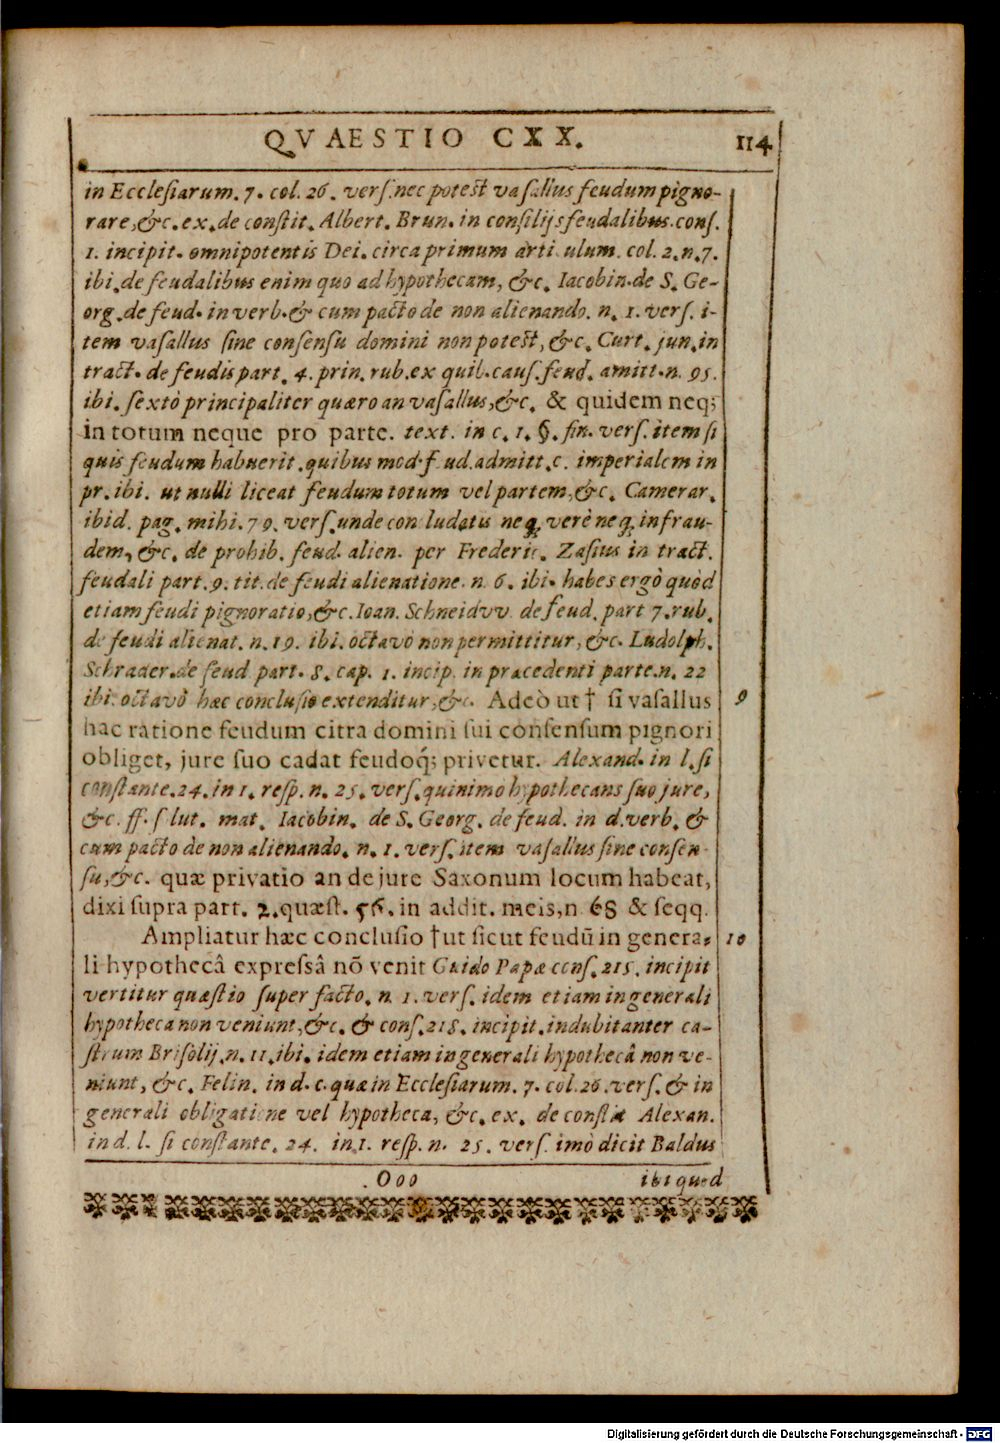 QVAESTIO CXX. 114
in Ecclesiarum. 7. col. 26. vers. nec potest vasallus feudum pigno-
rare, &c. ex. de constit. Albert. Brun. in consilijs feudalibus. cons.
1. incipit. omnipotentis Dei. circa primum arti ulum. col. 2. n. 7.
ibi. de feudalibus enim quo ad hypothecam, &c. Iacobin. de S. Ge-
org. de feud. in verb. & cum pacto de non alienando. n. 1. vers. i-
tem vasallus sine consensu domini non potest, &c. Curt. jun. in
tract. de feudis part. 4. prin. rub. ex quib. caus. feud. amitt. n. 95.
ibi. sextò principaliter quæro an vasallus, &c. & quidem neq;
in totum neque pro parte. text. in c. 1. §. fin. vers. item si
quis feudum habuerit. quibus mod. f ud. admitt. c. imperialem in
pr. ibi. ut nulli liceat feudum totum vel partem, &c. Camerar.
ibid. pag. mihi. 79. vers. unde con ludatis neq; verè neq; in frau-
dem, &c. de prohib. feud. alien. per Frederic. Zasius in tract.
feudali part. 9. tit. de feudi alienatione. n. 6. ibi. habes ergò quòd
etiam feudi pignoratio, &c. Ioan. Schneidvv. de feud. part 7. rub.
de feudi alienat. n. 19. ibi. octavò non permittitur, &c. Ludolph.
Schrader. de feud. part. 8. cap. 1. incip. in præcedenti parte. n. 22
ibi. octavò hæc conclusio extenditur, &c. Adeò ut † si vasallus 9
hac ratione feudum citra domini sui consensum pignori
obliget, jure suo cadat feudoq́; privetur. Alexand. in l. si
constante. 24. in 1. resp. n. 25. vers. quinimo hypothecans suo jure,
&c. ff. s lut. mat. Iacobin. de S. Georg. de feud. in d. verb. &
cum pacto de non alienando. n. 1. vers. item vasallus sine consen-
su, &c. quæ privatio an de jure Saxonum locum habeat,
dixi supra part. 2. quæst. 56. in addit. meis, n 68 & seqq.
Ampliatur hæc conclusio † ut sicut feudū in genera- 10
li hypothecâ expressâ nō venit Guido Papæ cons. 215. incipit
vertitur quæstio super facto. n. 1. vers. idem etiam in generali
hypotheca non veniunt, &c. & cons. 218. incipit. indubitanter ca-
strum Brisolij. n. 11. ibi. idem etiam in generali hypothecâ non ve-
niunt, &c. Felin. in d. c. quæ in Ecclesiarum. 7. col. 26. vers. & in
generali obligatione vel hypotheca, &c. ex. de constit Alexan.
in d. l. si constante. 24. in 1. resp. n. 25. vers. imò dicit Baldus
Ooo ibi quod
Digitalisierung gefördert durch die Deutsche Forschungsgemeinschaft - DFG